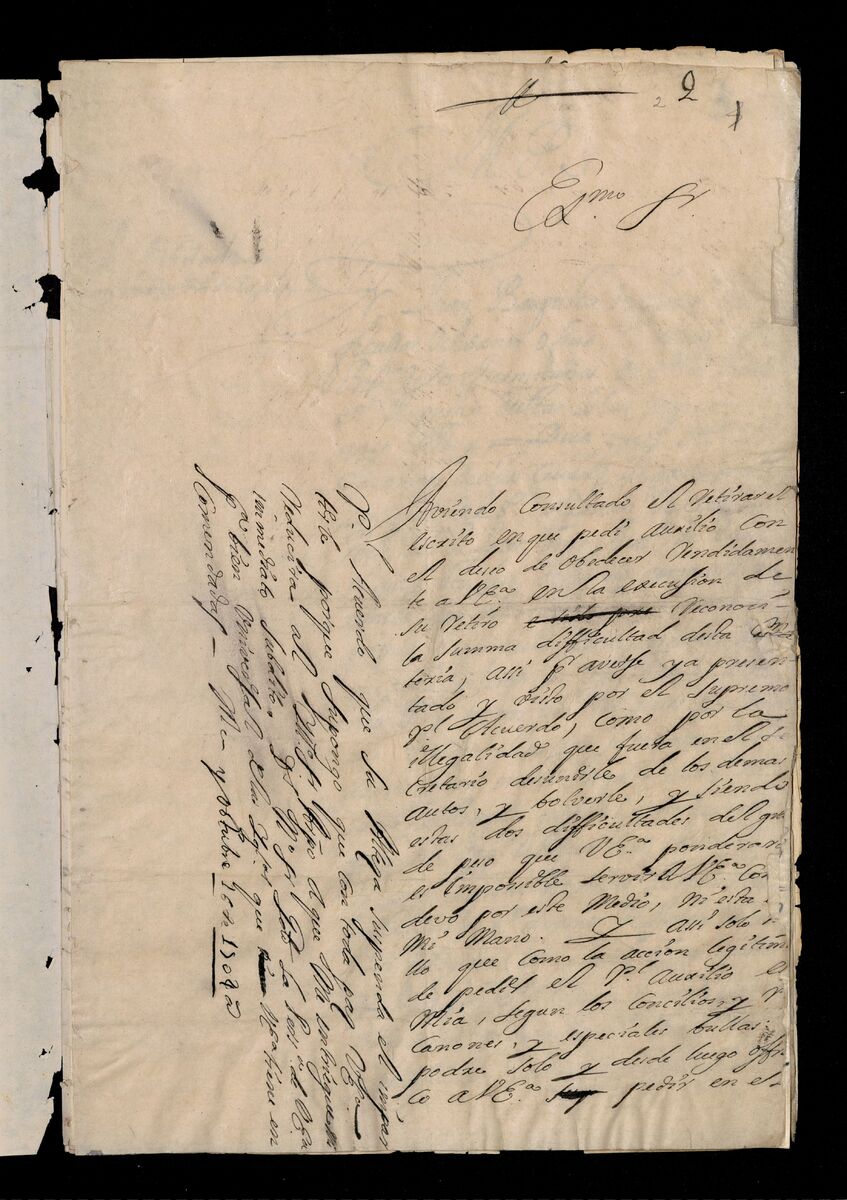 2 2 1
Ex.mo Sr.
Aviendo Consultado el retirar el
escrito en que pedi Auxilio Con
el deseo de obedecer Rendidamen
te a V.E.a en la execusion de
su retiro Reconoci
la summa difficultad desta Ma
teria, assi pr averse ya presen
tado y visto por el supremo
Rl. Acuerdo, Como por la
illegalidad que fuera en el se
cretario desunirle de los demas
Autos, y bolverle, y siendo
estas dos difficultades del gra
de peso que V.E.a ponderara
es imposible servir a V.E.a Con
devo por este Medio, ni esta
Mi Mano. Y assi solo
llo que como la acción legitim
de pedir el Rl. Auxilio es
Mia, segun los Concilios, y
Canones, y especiales bullas:
podre solo y desde luego offres
co a V.E.a pedir en el
Rl. Acuerdo que su Alteza suspenda el impar
tirle porque supongo que con toda paz V.Ex.a
reducira al Obpo a que me entregue
inmediato subalito. Ds. Gde. la Pers.a de V.Ex.a
pa. bien Universal de los que tiene en
comendados — Mex.co y octubre 30 de 1702 a